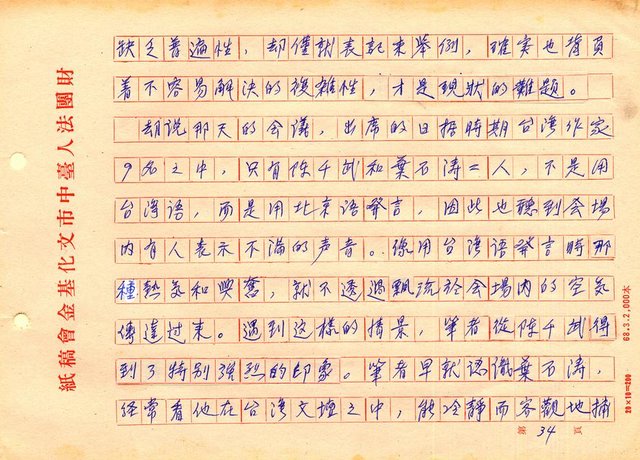 缺乏普遍性，却僅就表記来举例，確实也背負
着不容易解決的複雑性，才是現狀的難題。
却说那天的会議，出席的日据時期台湾作家
9名之中，只有陈千武和葉石涛二人，不是用
台湾語，而是用北京語發言，因此也聽到会場
内有人表示不滿的声音。像用台湾語發言時那
種熱気和興奮，就不透過飄流於会場内的空気
傳達过来。遇到这樣的情景，筆者從陈千武得
到了特别强烈的印象。筆者早就认識葉石涛，
经常看他在台湾文壇之中，能冷靜而客觀地捕
第34頁
財團法人臺中市文化基金會稿紙
68.3.2,000本
20×10=200